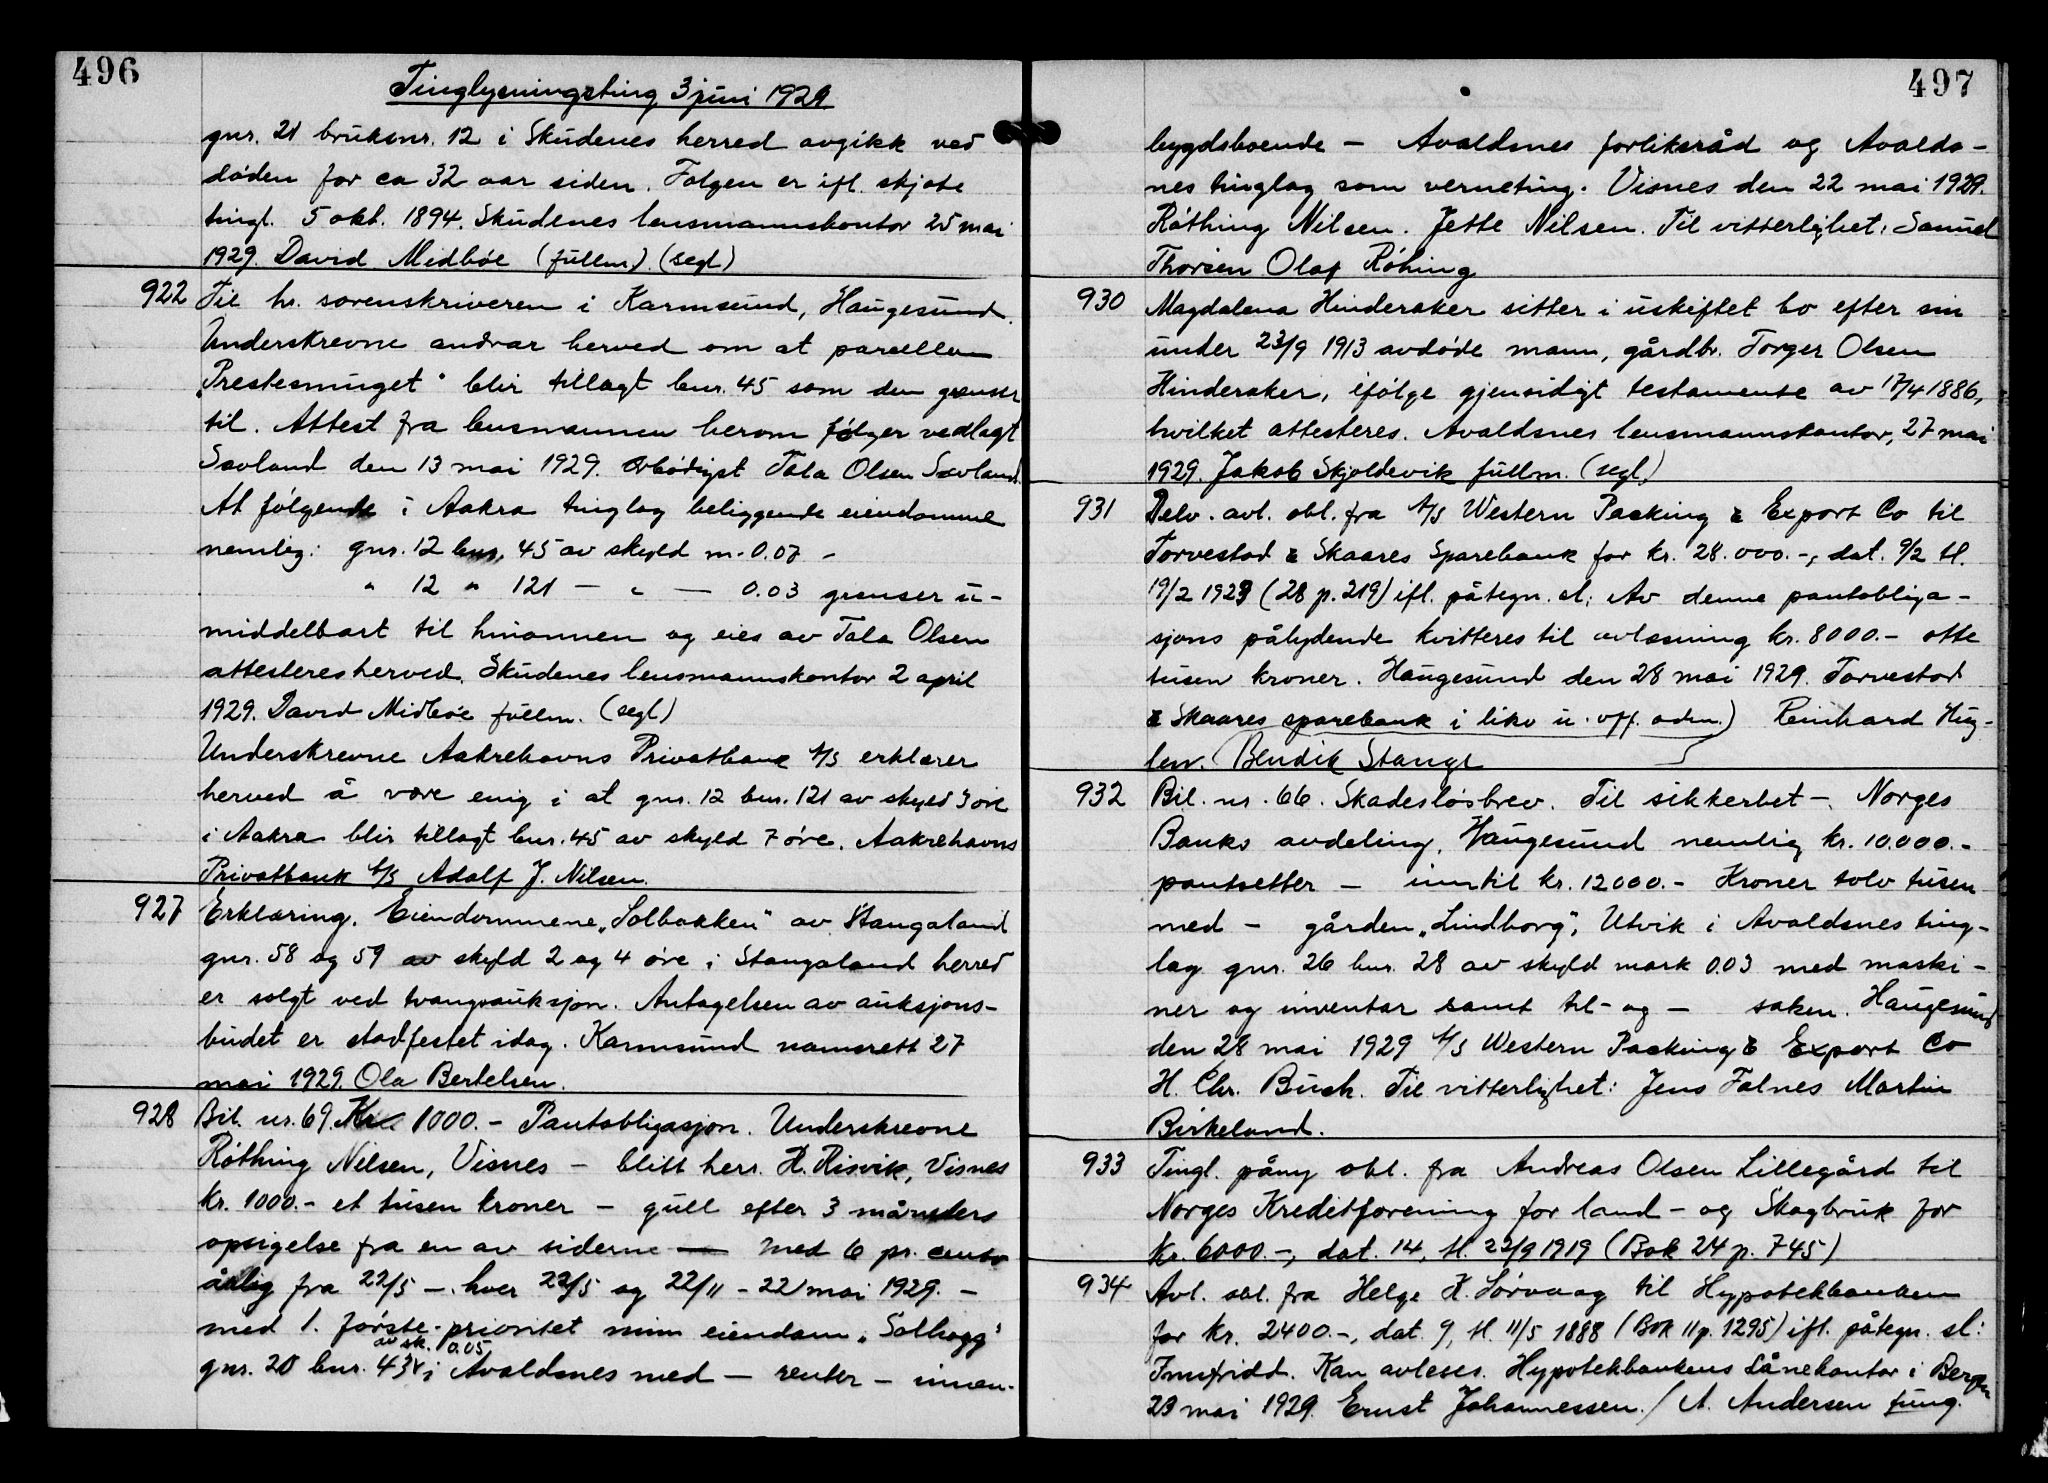 496
Tinglysningsting 3 juni 1929.
gnr. 21 bruksnr. 12 i Skudenes herred avgikk ved
døden for ca 32 aar siden. Folgen er ifl. skjøte
tingl. 5 okt. 1894. Skudenes lensmannskontor 25 mai
1929. David Midbøe (fullm.) (segl)
922 Til hr. sorenskriveren i Karmsund, Haugesund.
Underskrevne andrar herved om at parcellen
"Prestesmuget" blir tillagt bnr. 45 som den grenser
til. Attest fra lensmannen herom følger vedlagt
Sævland den 13 mai 1929. Ærbødigst Tala Olsen Sævland.
At følgende i Aakra tinglag beliggende eiendomme
nemlig: gnr. 12 bnr. 45 av skyld m. 0.07 -
" 12 " 121 - " - 0.03 grenser u-
middelbart til hinannen og eies av Tala Olsen
attesteres herved. Skudenes lensmannskontor 2 april
1929. David Midbøe fullm. (segl)
Underskrevne Aakrehavns Privatbank A/S erklærer
herved å være enig i at gnr. 12 bnr. 121 av skyld 3 øre
i Aakra blir tillagt bnr. 45 av skyld 7 øre. Aakrehavns
Privatbank A/S Adolf J. Nilsen.
927 Erklæring. Eiendommene "Solbakken" av Stangaland
gnr. 58 og 59 av skyld 2 og 4 øre i Stangaland herred
er solgt ved tvangsauksjon. Antagelsen av auksjons-
budet er stadfestet idag. Karmsund namsrett 27
mai 1929. Ola Bertelsen.
928 Bil. nr. 69. Kr. 1000.- Pantobligasjon. Underskrevne
Røthing Nilsen, Visnes - blitt herr. H. Risvik, Visnes
kr. 1000.- et tusen kroner - gull efter 3 måneders
opsigelse fra en av siderne - med 6 pr. cento
årlig fra 22/5 - hver 22/5 og 22/11 - 22 mai 1929. -
med 1. første prioritet min eiendom "Solhogg"
av sk. 0.05
gnr. 20 bnr. 43 i Avaldsnes med - renter - innen-
497
bygdsboende - Avaldsnes forliksråd og Avalds-
nes tinglag som verneting. Visnes den 22 mai 1929.
Røthing Nilsen. Jette Nilsen. Til vitterlighet: Samuel
Thorsen Olaf Røhing
930 Magdalena Hinderaker sitter i uskiftet bo efter sin
under 23/9 1913 avdøde mann, gårdbr. Torger Olsen
Hinderaker, ifølge gjensidigt testamente av 17/4 1886,
hvilket attesteres. Avaldsnes lensmannskontor, 27 mai
1929. Jakob Skjoldevik fullm. (segl)
931 Delv. avl. obl. fra A/S Western Packing & Export Co til
Torvestad & Skaares Sparebank for kr. 28.000.-, dat. 9/2 tl.
19/2 1923 (28 p. 219) ifl. påtegn. sl: Av denne pantobliga-
sjons pålydende kvitteres til avlæsning kr. 8000.- otte
tusen kroner. Haugesund den 28 mai 1929. Torvestad
& Skaares sparebank i likv u. off. adm.) Reinhard Hug-
len. Bendik Stange
932 Bil. nr. 66. Skadesløsbrev. Til sikkerhet - Norges
Banks avdeling, Haugesund nemlig kr. 10.000.-
pantsetter - inntil kr. 12000.- Kroner tolv tusen
med - gården "Lindborg", Utvik i Avaldsnes ting-
lag gnr. 26 bnr. 28 av skyld mark 0.03 med maski-
ner og inventar samt til- og - saken. Haugesund
den 28 mai 1929 A/S Western Packing & Export Co
H. Chr. Buch. Til vitterlighet: Jens Falnes Martin
Birkeland.
933 Tingl. påny obl. fra Andreas Olsen Lillegård til
Norges Kreditforening for land- og Skogbruk for
kr. 6000.-, dat. 14, tl. 22/9 1919 (Bok 24 p. 745)
934 Avl. obl. fra Helge K. Sørvaag til Hypotekbanken
for kr. 2400.-, dat. 9, tl. 11/5 1888 (Bok 11 p. 1295) ifl. påtegn. sl:
Innfridd. Kan avleses. Hypotekbankens Lånekontor i Bergen
23 mai 1929. Ernst Johannessen. / A. Andersen fung.